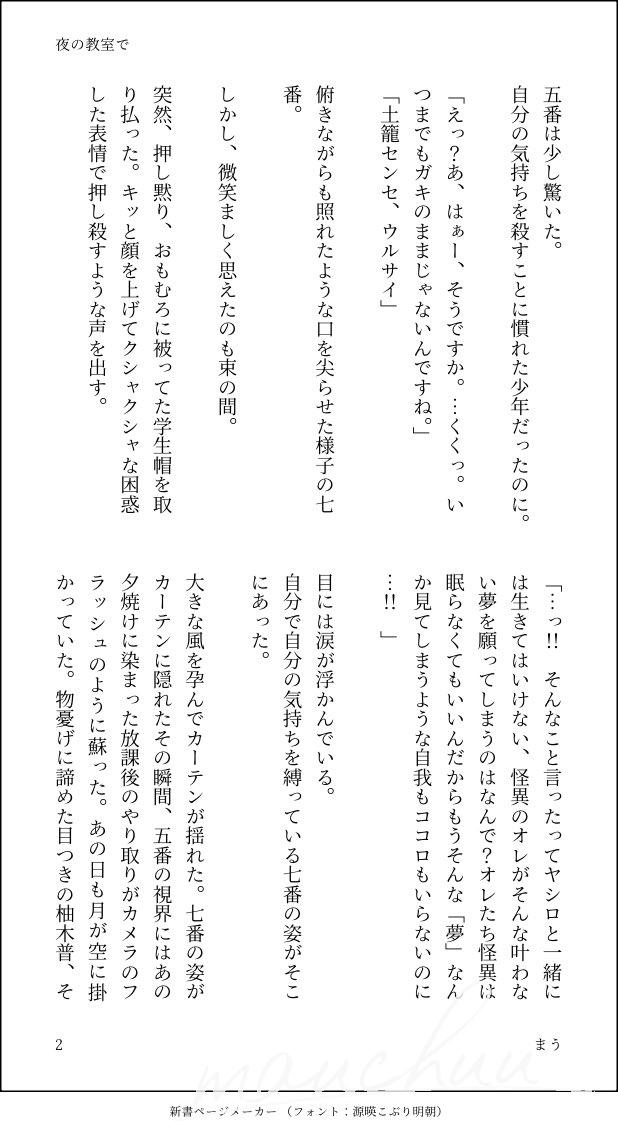 夜の教室で
五番は少し驚いた。
自分の気持ちを殺すことに慣れた少年だったのに。
「えっ？あ、はぁー、そうですか。…くくっ。い
つまでもガキのままじゃないんですね。」
「土籠センセ、ウルサイ」
俯きながらも照れたような口を尖らせた様子の七
番。
しかし、微笑ましく思えたのも束の間。
突然、押し黙り、おもむろに被ってた学生帽を取
り払った。キッと顔を上げてクシャクシャな困惑
した表情で押し殺すような声を出す。
「…っ!!　そんなこと言ったってヤシロと一緒に
は生きてはいけない、怪異のオレがそんな叶わな
い夢を願ってしまうのはなんで？オレたち怪異は
眠らなくてもいいんだからもうそんな「夢」なん
か見てしまうような自我もココロもいらないのに
…!!　」
目には涙が浮かんでいる。
自分で自分の気持ちを縛っている七番の姿がそこ
にあった。
大きな風を孕んでカーテンが揺れた。七番の姿が
カーテンに隠れたその瞬間、五番の視界にはあの
夕焼けに染まった放課後のやり取りがカメラのフ
ラッシュのように蘇った。あの日も月が空に掛
かっていた。物憂げに諦めた目つきの柚木普、そ
2
まう
mauchuu
新書ページメーカー（フォント：源暎こぶり明朝）